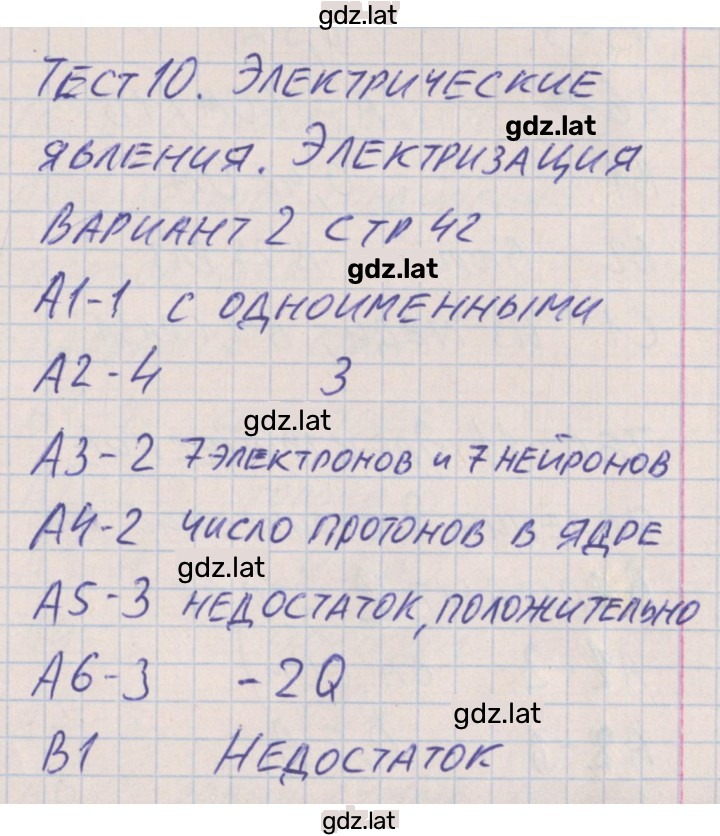 gdz.lat
Тест 10. Электрические
gdz.lat
явления. Электризация
Вариант 2 стр 42
gdz.lat
А1-1 с одноименными
А2-4 3
gdz.lat
А3-2 7 электронов и 7 нейронов
А4-2 число протонов в ядре
gdz.lat
А5-3 недостаток, положительно
А6-3 -2Q
gdz.lat
В1 Недостаток
gdz.lat